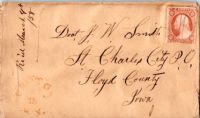 Rec'd March 9th
/58
Doct. J. W. Smith
St Charles City P.O.
Floyd County
Iowa